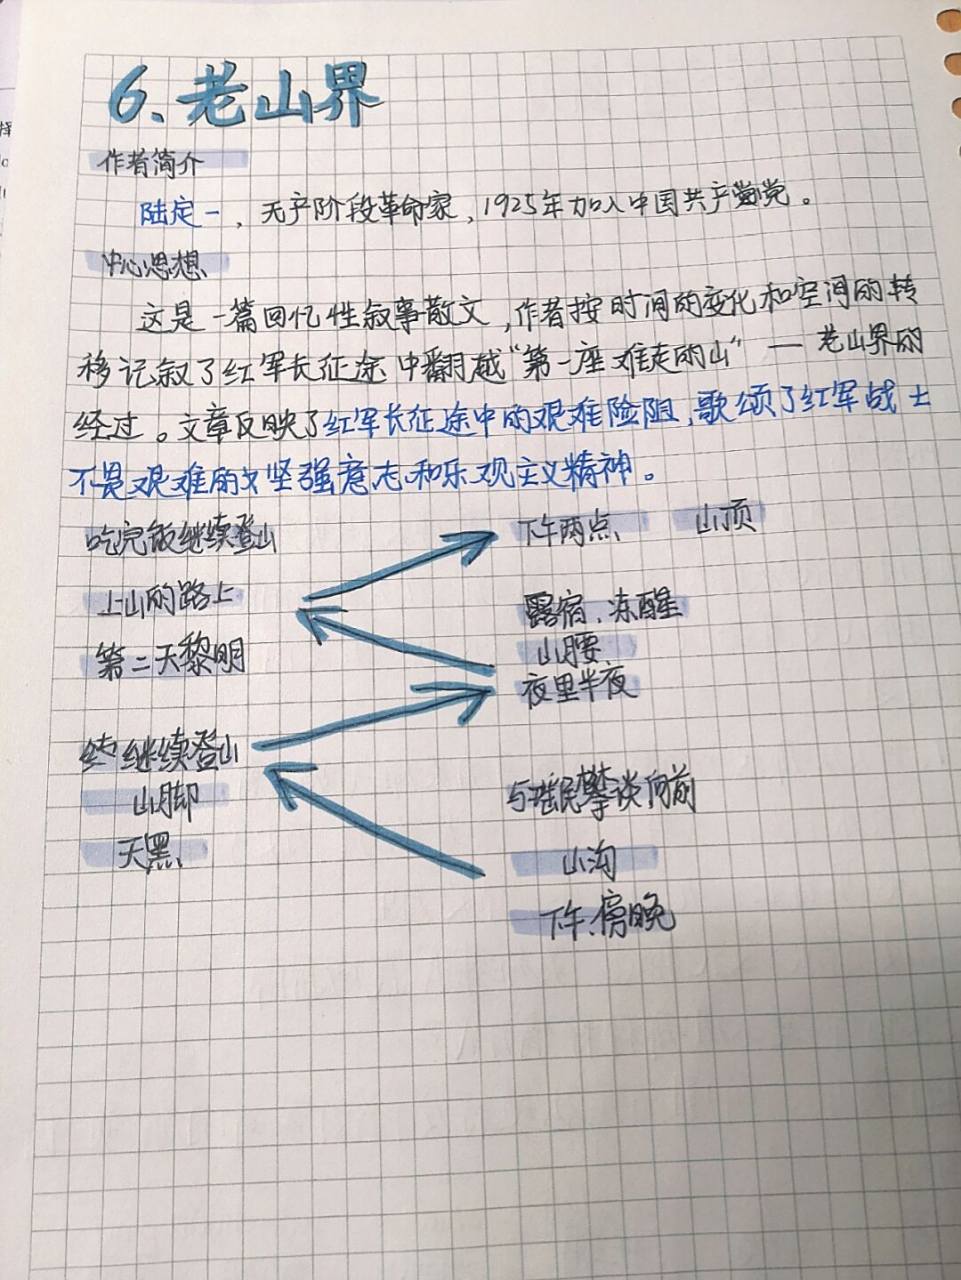 6、老山界
作者简介
陆定一，无产阶段革命家，1925年加入中国共产党党。
中心思想
这是一篇回忆性叙事散文，作者按时间的变化和空间的转
移记叙了红军长征途中翻越“第一座难走的山”—老山界的
经过。文章反映了红军长征途中的艰难险阻，歌颂了红军战士
不畏艰难的坚强意志和乐观主义精神。
吃完饭继续登山
下午两点 山顶
上山的路上
露宿、冻醒
第二天黎明
山腰
夜里半夜
继续登山
山脚
天黑
与瑶民攀谈向前
山沟
下午、傍晚